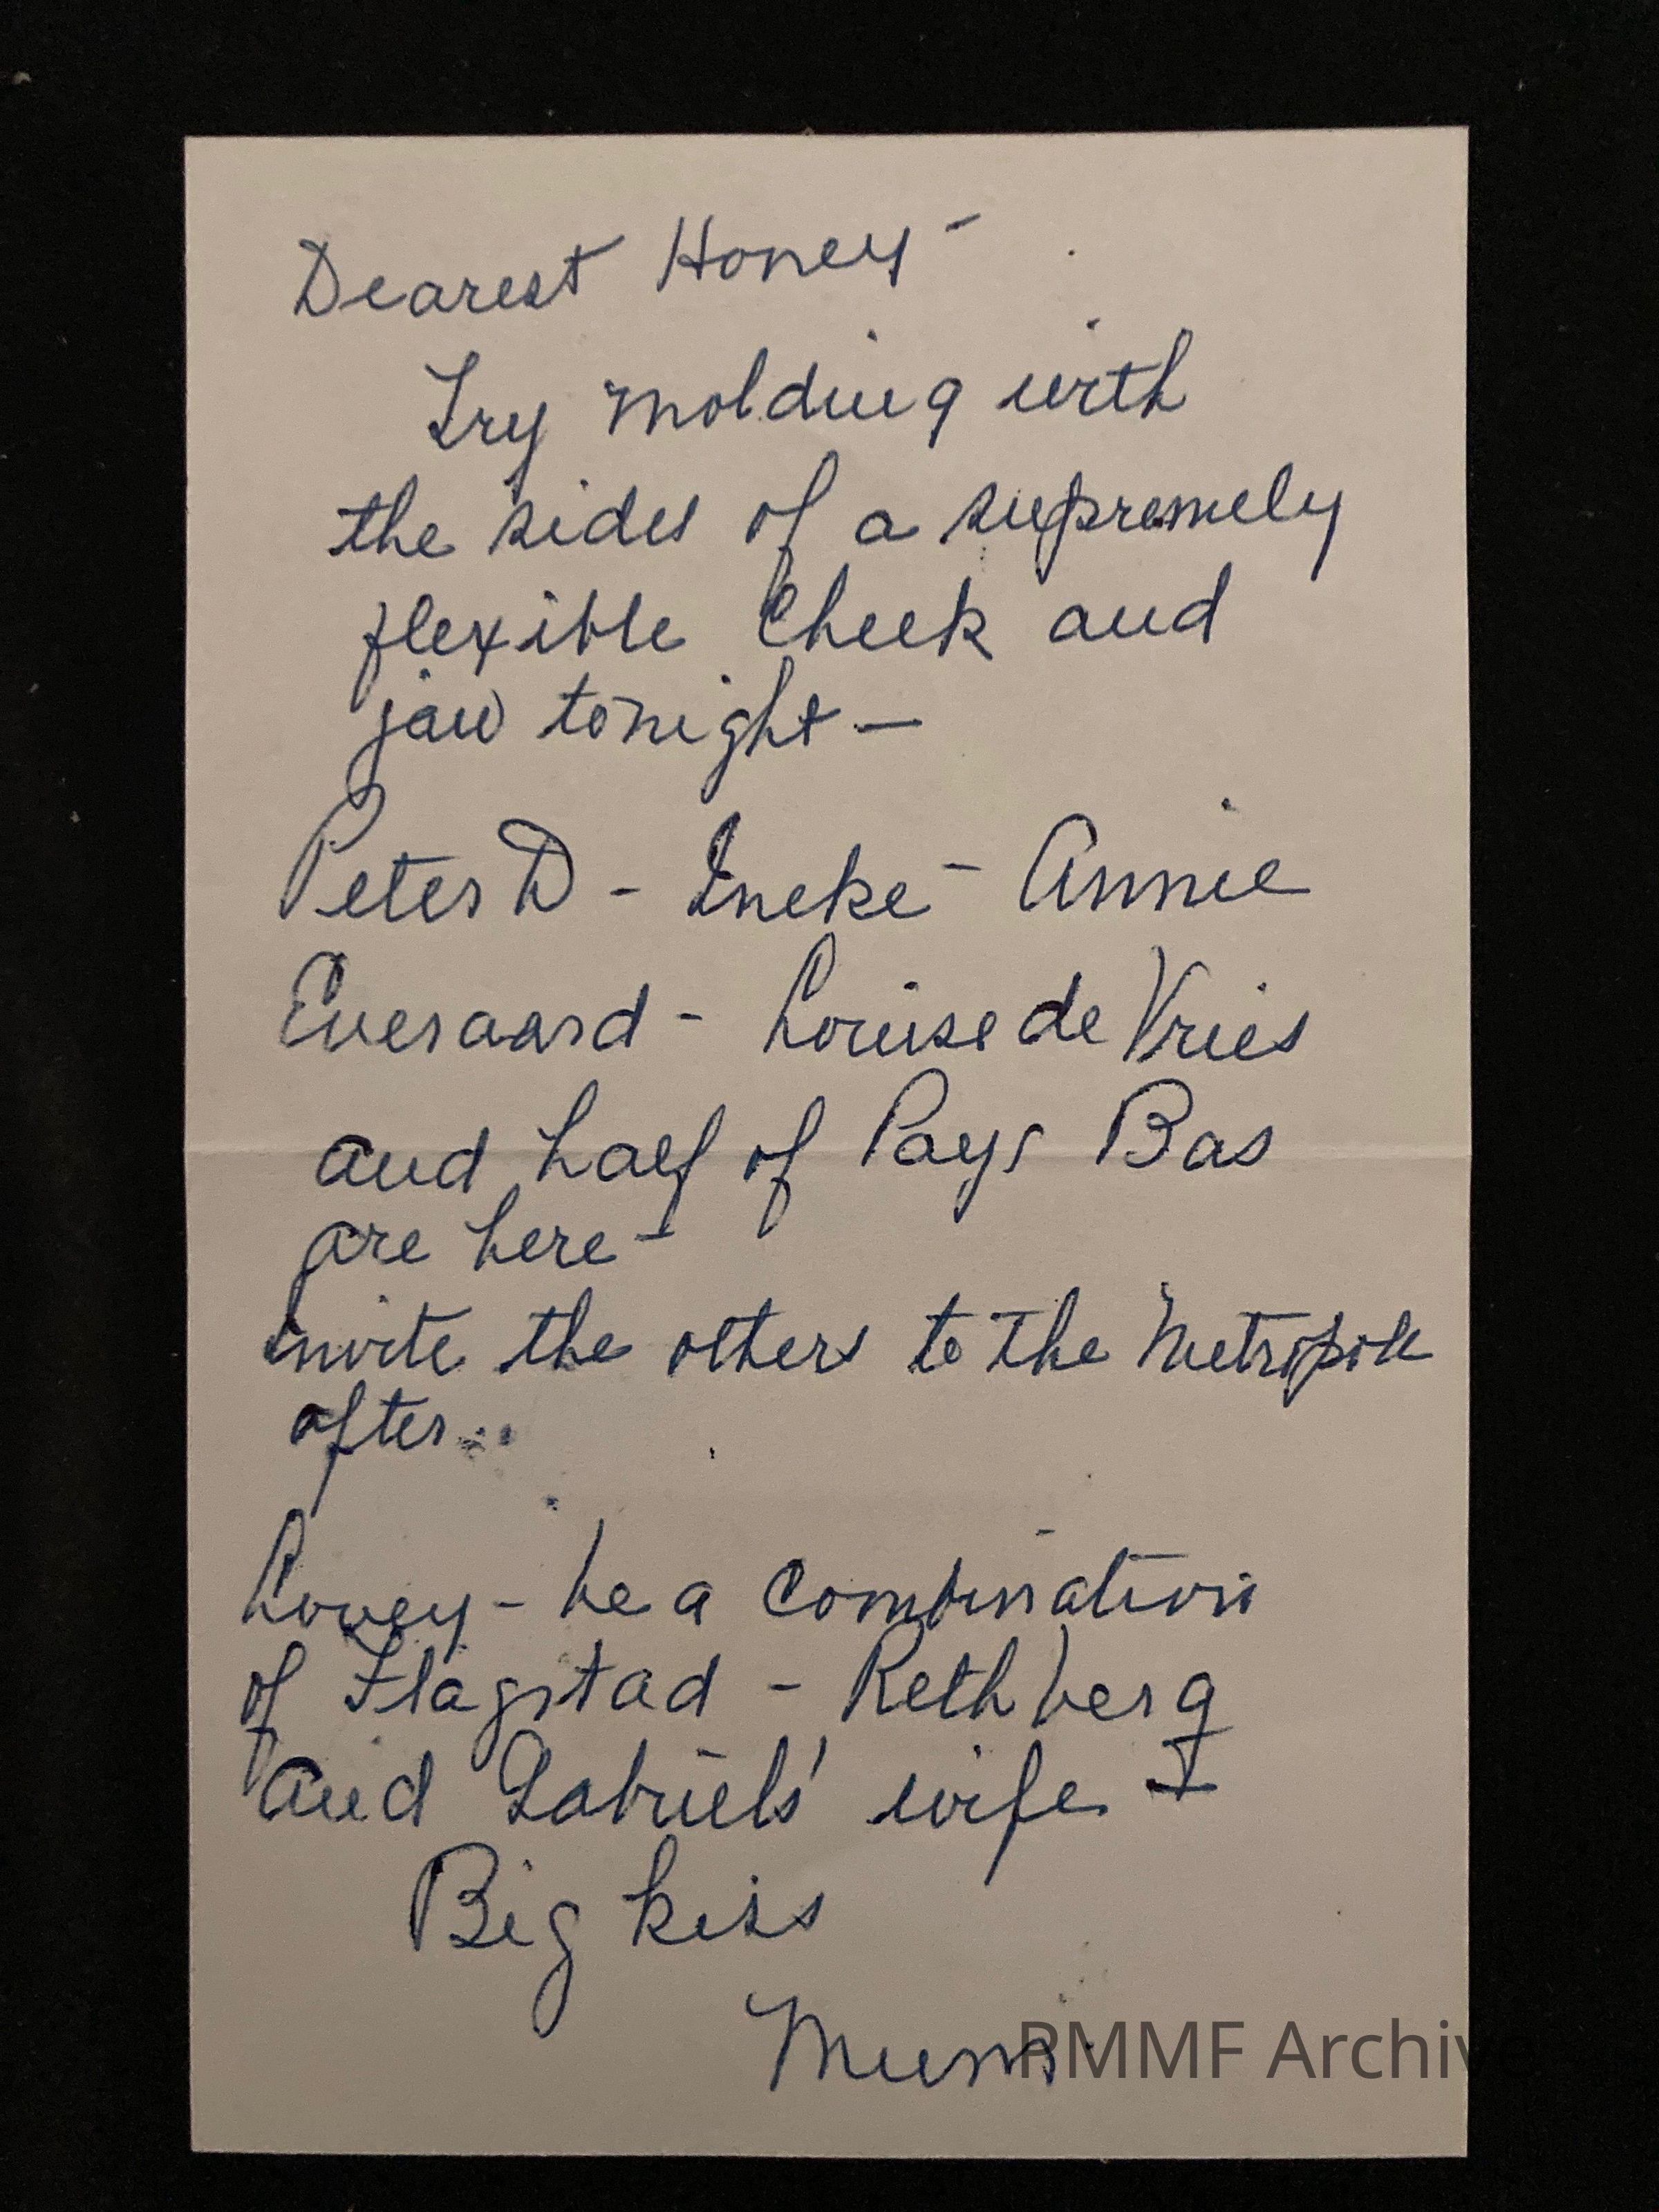 Dearest Honey -
Try molding with
the sides of a supremely
flexible cheek and
jaw tonight —
Peter D - Ineke - Annie
Everaard - Louise de Vries
and half of Pays Bas
are here -
Invite the others to the Metropole
after..
Lovey - be a combination
of Flagstad - Rethberg
and Gabriels' wife -
Big kiss
Mums
PMMF Archive